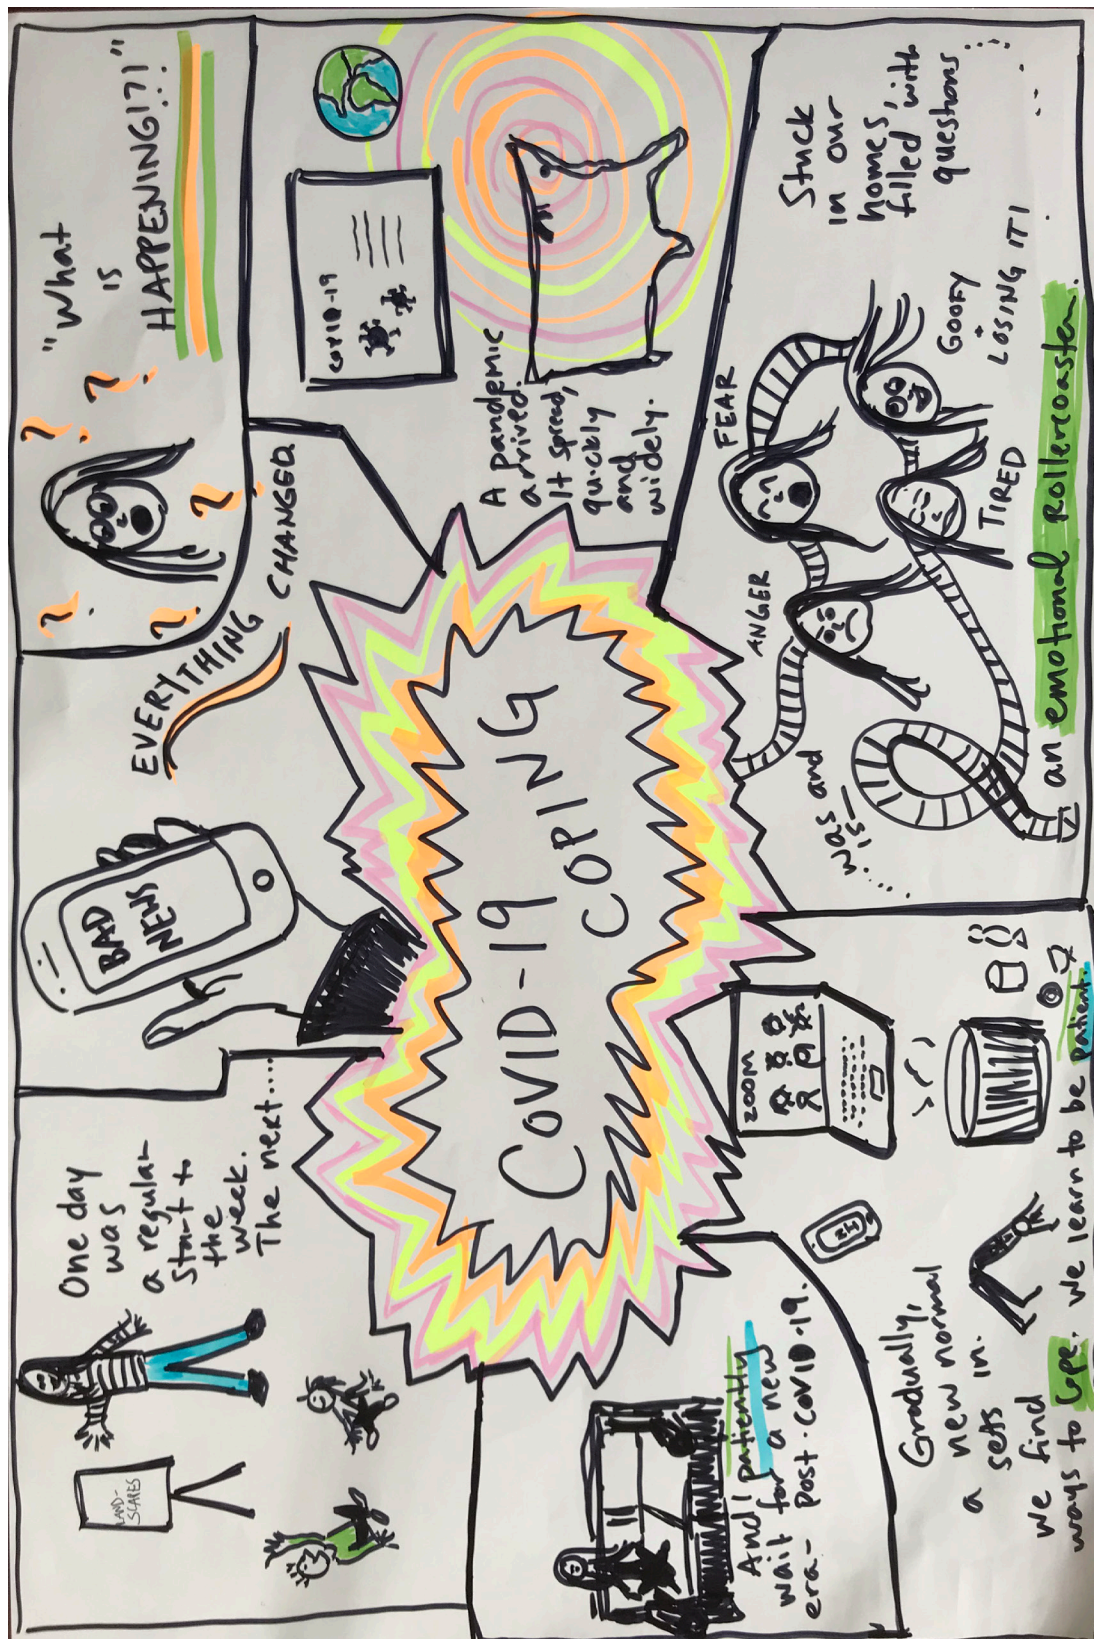 COVID-19
COPING
LAND-
SCAPES
One day
was
a regular
start to
the
week.
The next.....
BAD
NEWS
EVERYTHING
CHANGED
"What
is
HAPPENING!?!"
? ? ? ? ?
COVID-19
A pandemic
arrived.
It spread,
quickly
and
widely.
Stuck
in our
homes,
filled with
questions
.....
...
was and
is
......
ANGER
FEAR
TIRED
GOOFY
+
LOSING IT!
an emotional rollercoaster.
ZOOM
Hi
Gradually,
a new normal
sets in.
We find
ways to cope. We learn to be patient.
And I patiently
wait for a new
era - post-COVID-19.